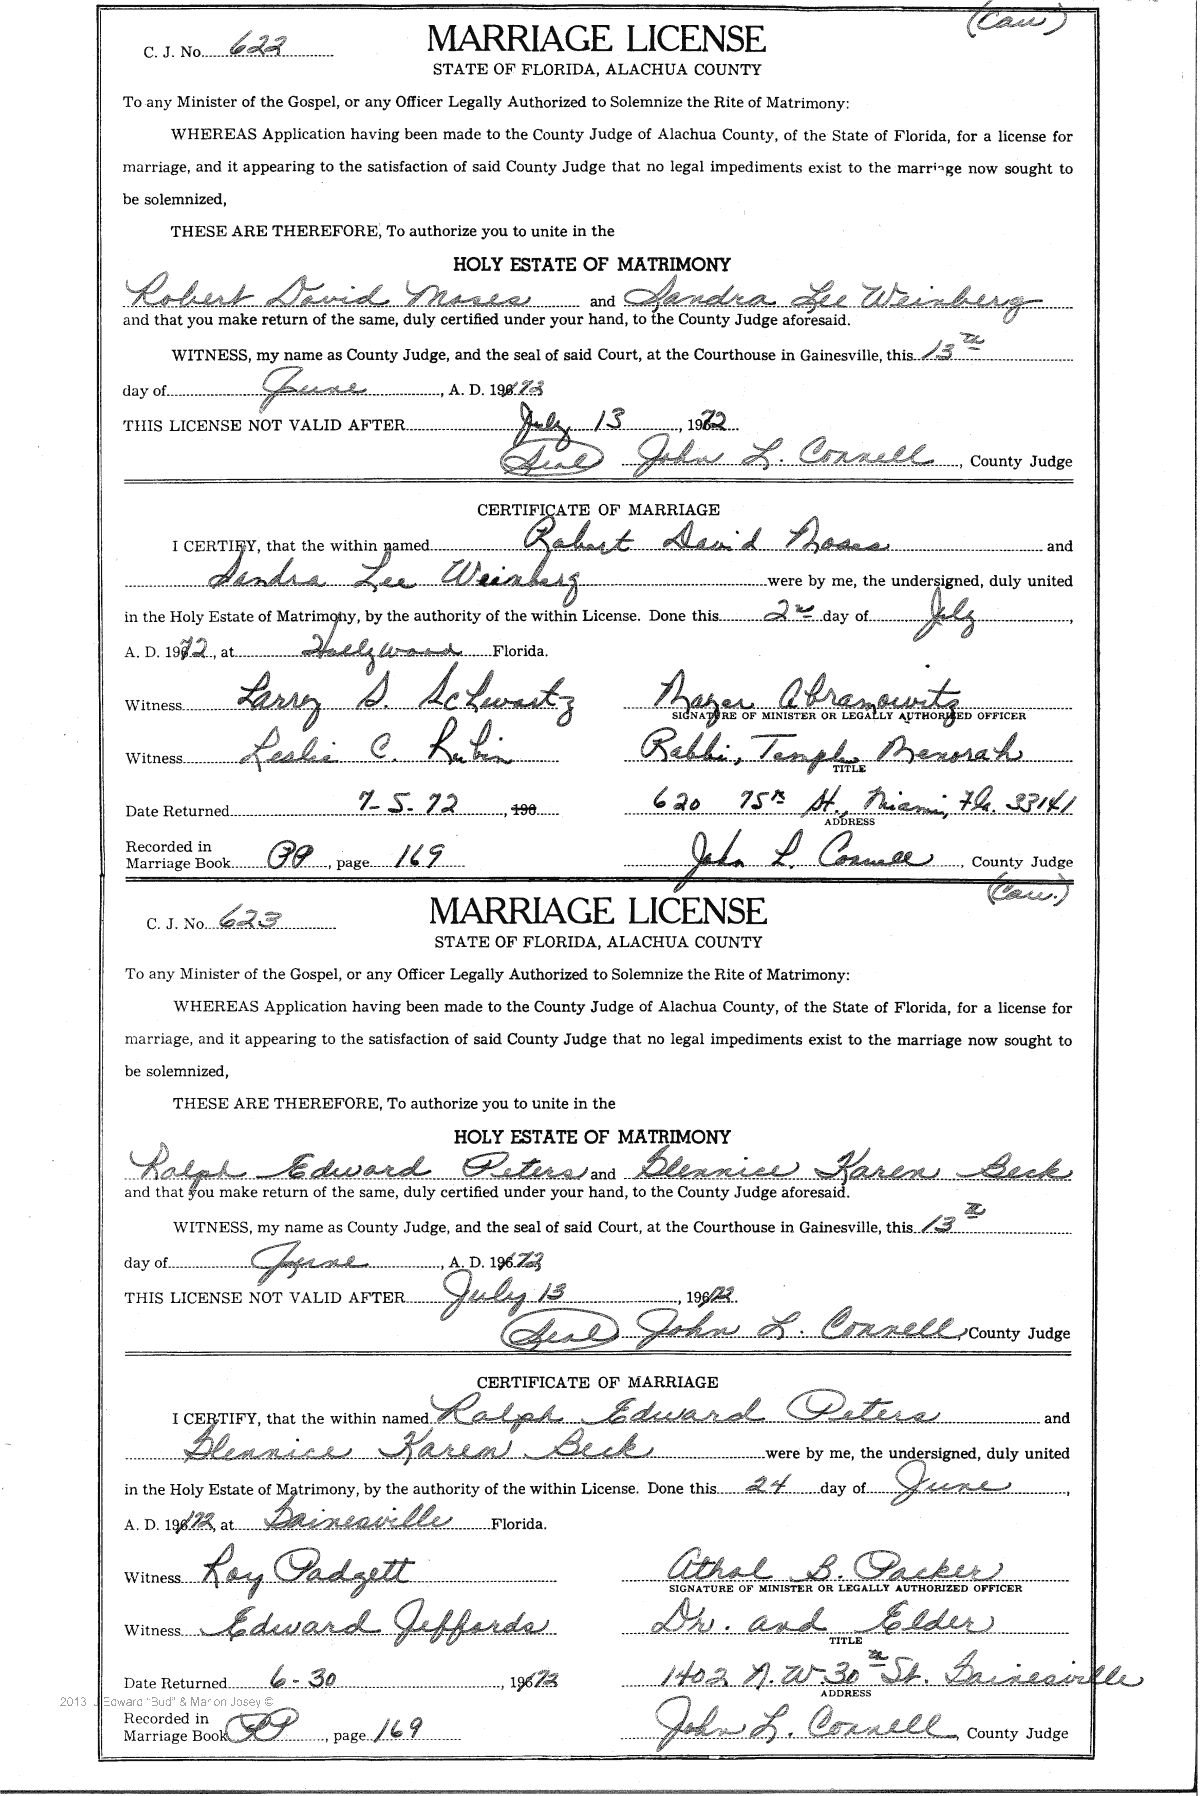 (Cau)
C. J. No. 622 MARRIAGE LICENSE
STATE OF FLORIDA, ALACHUA COUNTY
To any Minister of the Gospel, or any Officer Legally Authorized to Solemnize the Rite of Matrimony:
WHEREAS Application having been made to the County Judge of Alachua County, of the State of Florida, for a license for
marriage, and it appearing to the satisfaction of said County Judge that no legal impediments exist to the marriage now sought to
be solemnized,
THESE ARE THEREFORE, To authorize you to unite in the
HOLY ESTATE OF MATRIMONY
Robert David Moses and Sandra Lee Weinberg
and that you make return of the same, duly certified under your hand, to the County Judge aforesaid.
WITNESS, my name as County Judge, and the seal of said Court, at the Courthouse in Gainesville, this 13th
day of June, A. D. 1972
THIS LICENSE NOT VALID AFTER July 13, 1972
(Seal) John L. Connell, County Judge
CERTIFICATE OF MARRIAGE
I CERTIFY, that the within named Robert David Moses and
Sandra Lee Weinberg were by me, the undersigned, duly united
in the Holy Estate of Matrimony, by the authority of the within License. Done this 2nd day of July,
A. D. 1972, at Hollywood Florida.
Witness Larry S. Schwartz Mayer Abramowitz
SIGNATURE OF MINISTER OR LEGALLY AUTHORIZED OFFICER
Witness Leslie C. Rubin Rabbi, Temple Menorah
TITLE
Date Returned 7-5-72, 196 620 75th St., Miami, Fla. 33141
ADDRESS
Recorded in
Marriage Book PP, page 169 John L. Connell, County Judge
(Cau.)
C. J. No. 623 MARRIAGE LICENSE
STATE OF FLORIDA, ALACHUA COUNTY
To any Minister of the Gospel, or any Officer Legally Authorized to Solemnize the Rite of Matrimony:
WHEREAS Application having been made to the County Judge of Alachua County, of the State of Florida, for a license for
marriage, and it appearing to the satisfaction of said County Judge that no legal impediments exist to the marriage now sought to
be solemnized,
THESE ARE THEREFORE, To authorize you to unite in the
HOLY ESTATE OF MATRIMONY
Ralph Edward Peters and Glennice Karen Beck
and that you make return of the same, duly certified under your hand, to the County Judge aforesaid.
WITNESS, my name as County Judge, and the seal of said Court, at the Courthouse in Gainesville, this 13th
day of June, A. D. 1972
THIS LICENSE NOT VALID AFTER July 13, 1972
(Seal) John L. Connell, County Judge
CERTIFICATE OF MARRIAGE
I CERTIFY, that the within named Ralph Edward Peters and
Glennice Karen Beck were by me, the undersigned, duly united
in the Holy Estate of Matrimony, by the authority of the within License. Done this 24 day of June,
A. D. 1972, at Gainesville Florida.
Witness Roy Padgett Athol B. Packer
SIGNATURE OF MINISTER OR LEGALLY AUTHORIZED OFFICER
Witness Edward Jeffords Dr. and Elder
TITLE
Date Returned 6-30, 1972 1402 N.W. 30th St. Gainesville
ADDRESS
2013 J Edward "Bud" & Marion Josey ©
Recorded in
Marriage Book PP, page 169 John L. Connell, County Judge